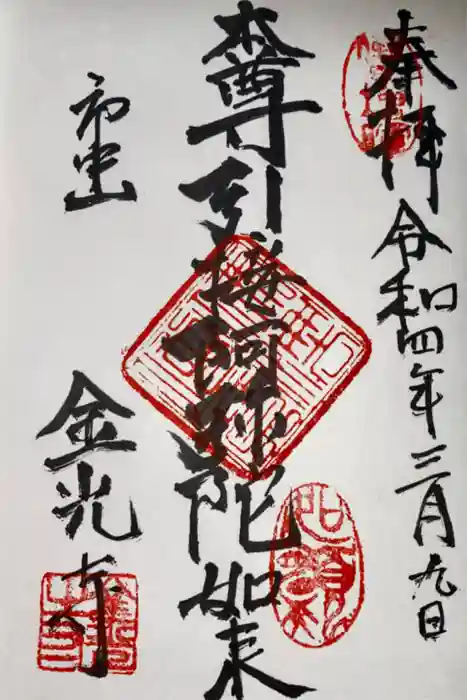 奉拝 令和四年三月九日
本尊引接阿弥陀如来
市中山 金光寺